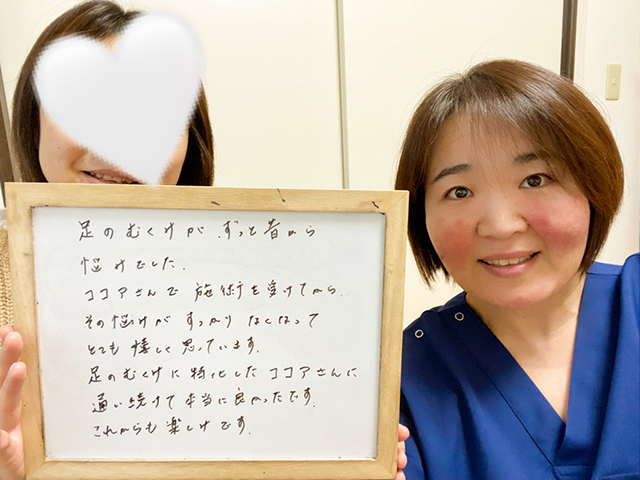 足のむくみが、ずっと昔から
悩みでした。
ココアさんで施術を受けてから、
その悩みがすっかりなくなって
とても嬉しく思っています。
足のむくみに特化したココアさんに
通い続けて本当に良かったです。
これからも楽しみです。